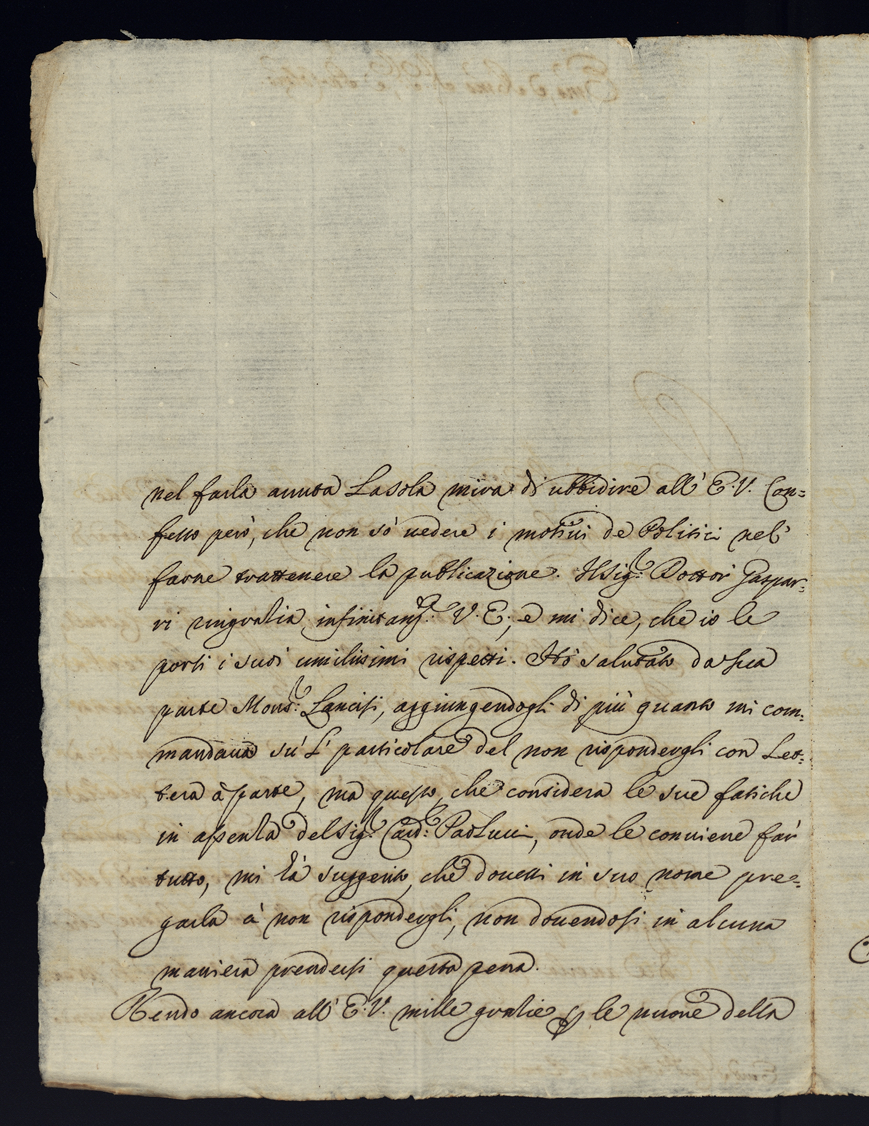 nel farla avuta La sola mira di ubbidire all' E. V. Con=
fesso però, che non sò vedere i motivi de Politici nel'
farne trattenere la publicazione. Il Sig.r Dottor Gaspar=
ri ringratia infinitam.te V. E., e mi dice, che io le
porti i suoi umilissimi rispetti. Hò salutato da sua
parte Mons.r Lancisi, aggiungendogli di più quanto mi com=
mandava sù l' particolare del non rispondergli con Let=
tera à parte, ma questo, che considera le sue fatiche
in assenza del Sig.r Card. Paolucci, onde le conviene far
tutto, mi hà suggerito, che dovessi in suo nome pre=
garla à non rispondergli, non dovendosi in alcuna
maniera prendersi questa pena.
Rendo ancora all' E. V. mille gratie p le nuove della